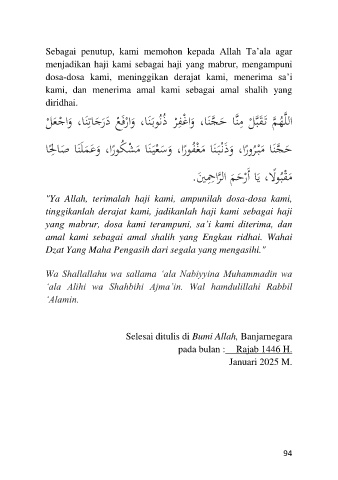 Sebagai penutup, kami memohon kepada Allah Ta’ala agar
menjadikan haji kami sebagai haji yang mabrur, mengampuni
dosa-dosa kami, meninggikan derajat kami, menerima sa’i
kami, dan menerima amal kami sebagai amal shalih yang
diridhai.
اللَّهُمَّ تَقَبَّلْ مِنَّا حَجَّنَا، وَاغْفِرْ ذُنُوبَنَا، وَارْفَعْ دَرَجَاتِنَا، وَاجْعَلْ
حَجَّنَا مَبْرُورًا، وَذَنْبَنَا مَغْفُورًا، وَسَعْيَنَا مَشْكُورًا، وَعَمَلَنَا صَالِحًا
مَقْبُولًا، يَا أَرْحَمَ الرَّاحِمِينَ.
"Ya Allah, terimalah haji kami, ampunilah dosa-dosa kami,
tinggikanlah derajat kami, jadikanlah haji kami sebagai haji
yang mabrur, dosa kami terampuni, sa’i kami diterima, dan
amal kami sebagai amal shalih yang Engkau ridhai. Wahai
Dzat Yang Maha Pengasih dari segala yang mengasihi."
Wa Shallallahu wa sallama ‘ala Nabiyyina Muhammadin wa
‘ala Alihi wa Shahbihi Ajma’in. Wal hamdulillahi Rabbil
‘Alamin.
Selesai ditulis di Bumi Allah, Banjarnegara
pada bulan : Rajab 1446 H.
Januari 2025 M.
94